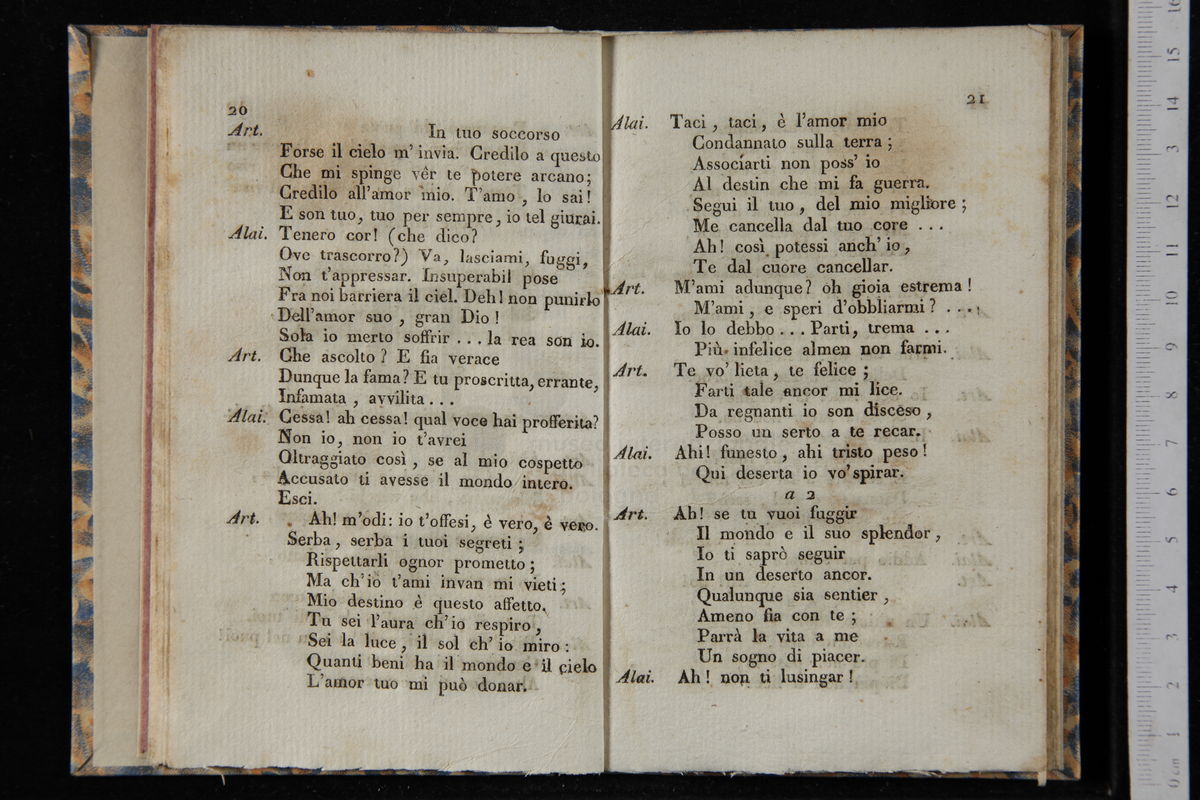 20
Art. In tuo soccorso
Forse il cielo m'invia. Credilo a questo
Che mi spinge vêr te potere arcano;
Credilo all'amor mio. T'amo, lo sai!
E son tuo, tuo per sempre, io tel giurai.
Alai. Tenero cor! (che dico?
Ove trascorro?) Va, lasciami, fuggi,
Non t'appressar. Insuperabil pose
Fra noi barriera il ciel. Deh! non punirlo
Dell'amor suo, gran Dio!
Sola io merto soffrir... la rea son io.
Art. Che ascolto? E fia verace
Dunque la fama? E tu proscritta, errante,
Infamata, avvilita...
Alai. Cessa! ah cessa! qual voce hai profferita?
Non io, non io t'avrei
Oltraggiato così, se al mio cospetto
Accusato ti avesse il mondo intero.
Esci.
Art. Ah! m'odi: io t'offesi, è vero, è vero.
Serba, serba i tuoi segreti;
Rispettarli ognor prometto;
Ma ch'io t'ami invan mi vieti;
Mio destino è questo affetto.
Tu sei l'aura ch'io respiro,
Sei la luce, il sol ch'io miro:
Quanti beni ha il mondo e il cielo
L'amor tuo mi può donar.
21
Alai. Taci, taci, è l'amor mio
Condannato sulla terra;
Associarti non poss'io
Al destin che mi fa guerra.
Segui il tuo, del mio migliore;
Me cancella dal tuo core...
Ah! così potessi anch'io,
Te dal cuore cancellar.
Art. M'ami adunque? oh gioia estrema!
M'ami, e speri d'obbliarmi?....
Alai. Io lo debbo... Parti, trema...
Più infelice almen non farmi.
Art. Te vo' lieta, te felice;
Farti tale ancor mi lice.
Da regnanti io son disceso,
Posso un serto a te recar.
Alai. Ahi! funesto, ahi tristo peso!
Qui deserta io vo' spirar.
a 2
Art. Ah! se tu vuoi fuggir
Il mondo e il suo splendor,
Io ti saprò seguir
In un deserto ancor.
Qualunque sia sentier,
Ameno fia con te;
Parrà la vita a me
Un sogno di piacer.
Alai. Ah! non ti lusingar!
0 cm 1 2 3 4 5 6 7 8 9 10 11 12 13 14 15 16